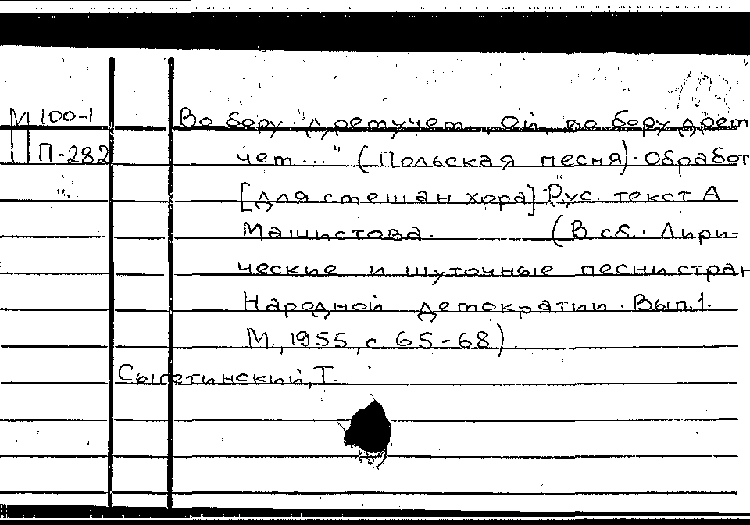 193
М 100-1
П-282
Во бору "дремучем, ой, во бору дрем
чем..." (Польская песня). Обработ
[для смешан хора] Рус. текст А
Машистова. (В сб.: Лири-
ческие и шуточные песни стран
Народной демократии. Вып.1.
М., 1955, с 65-68)
Сыгетинский, Т.